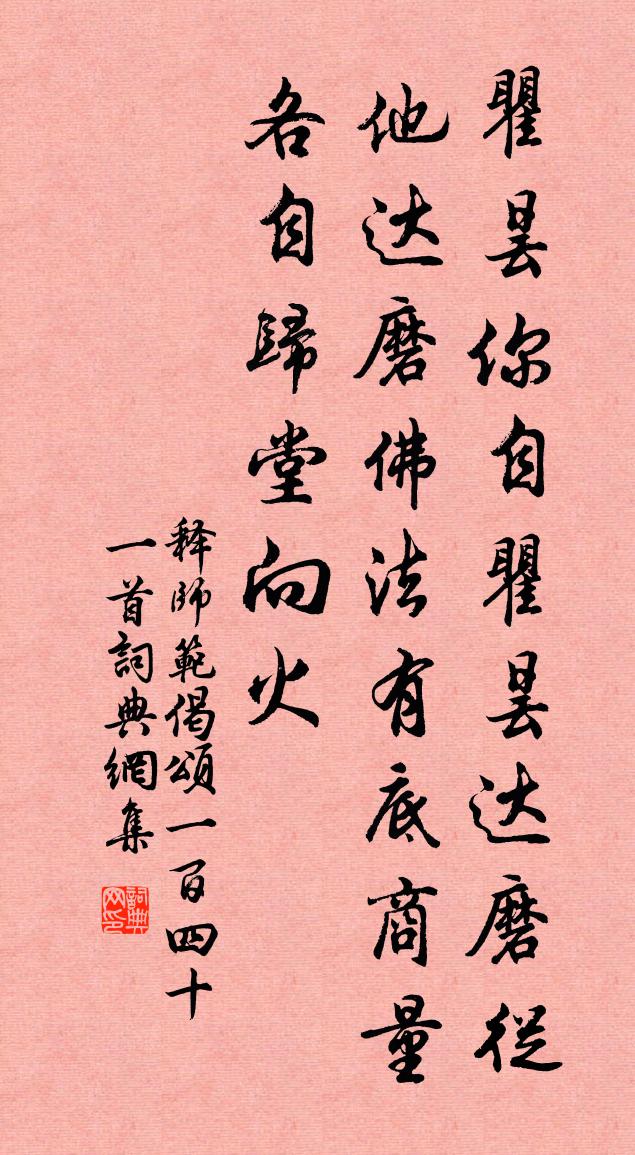 瞿昙你自瞿昙达磨從
他达磨佛法有底商量
各自歸堂向火
释師範偈頌一百四十
一首詞典網集
詞典网印